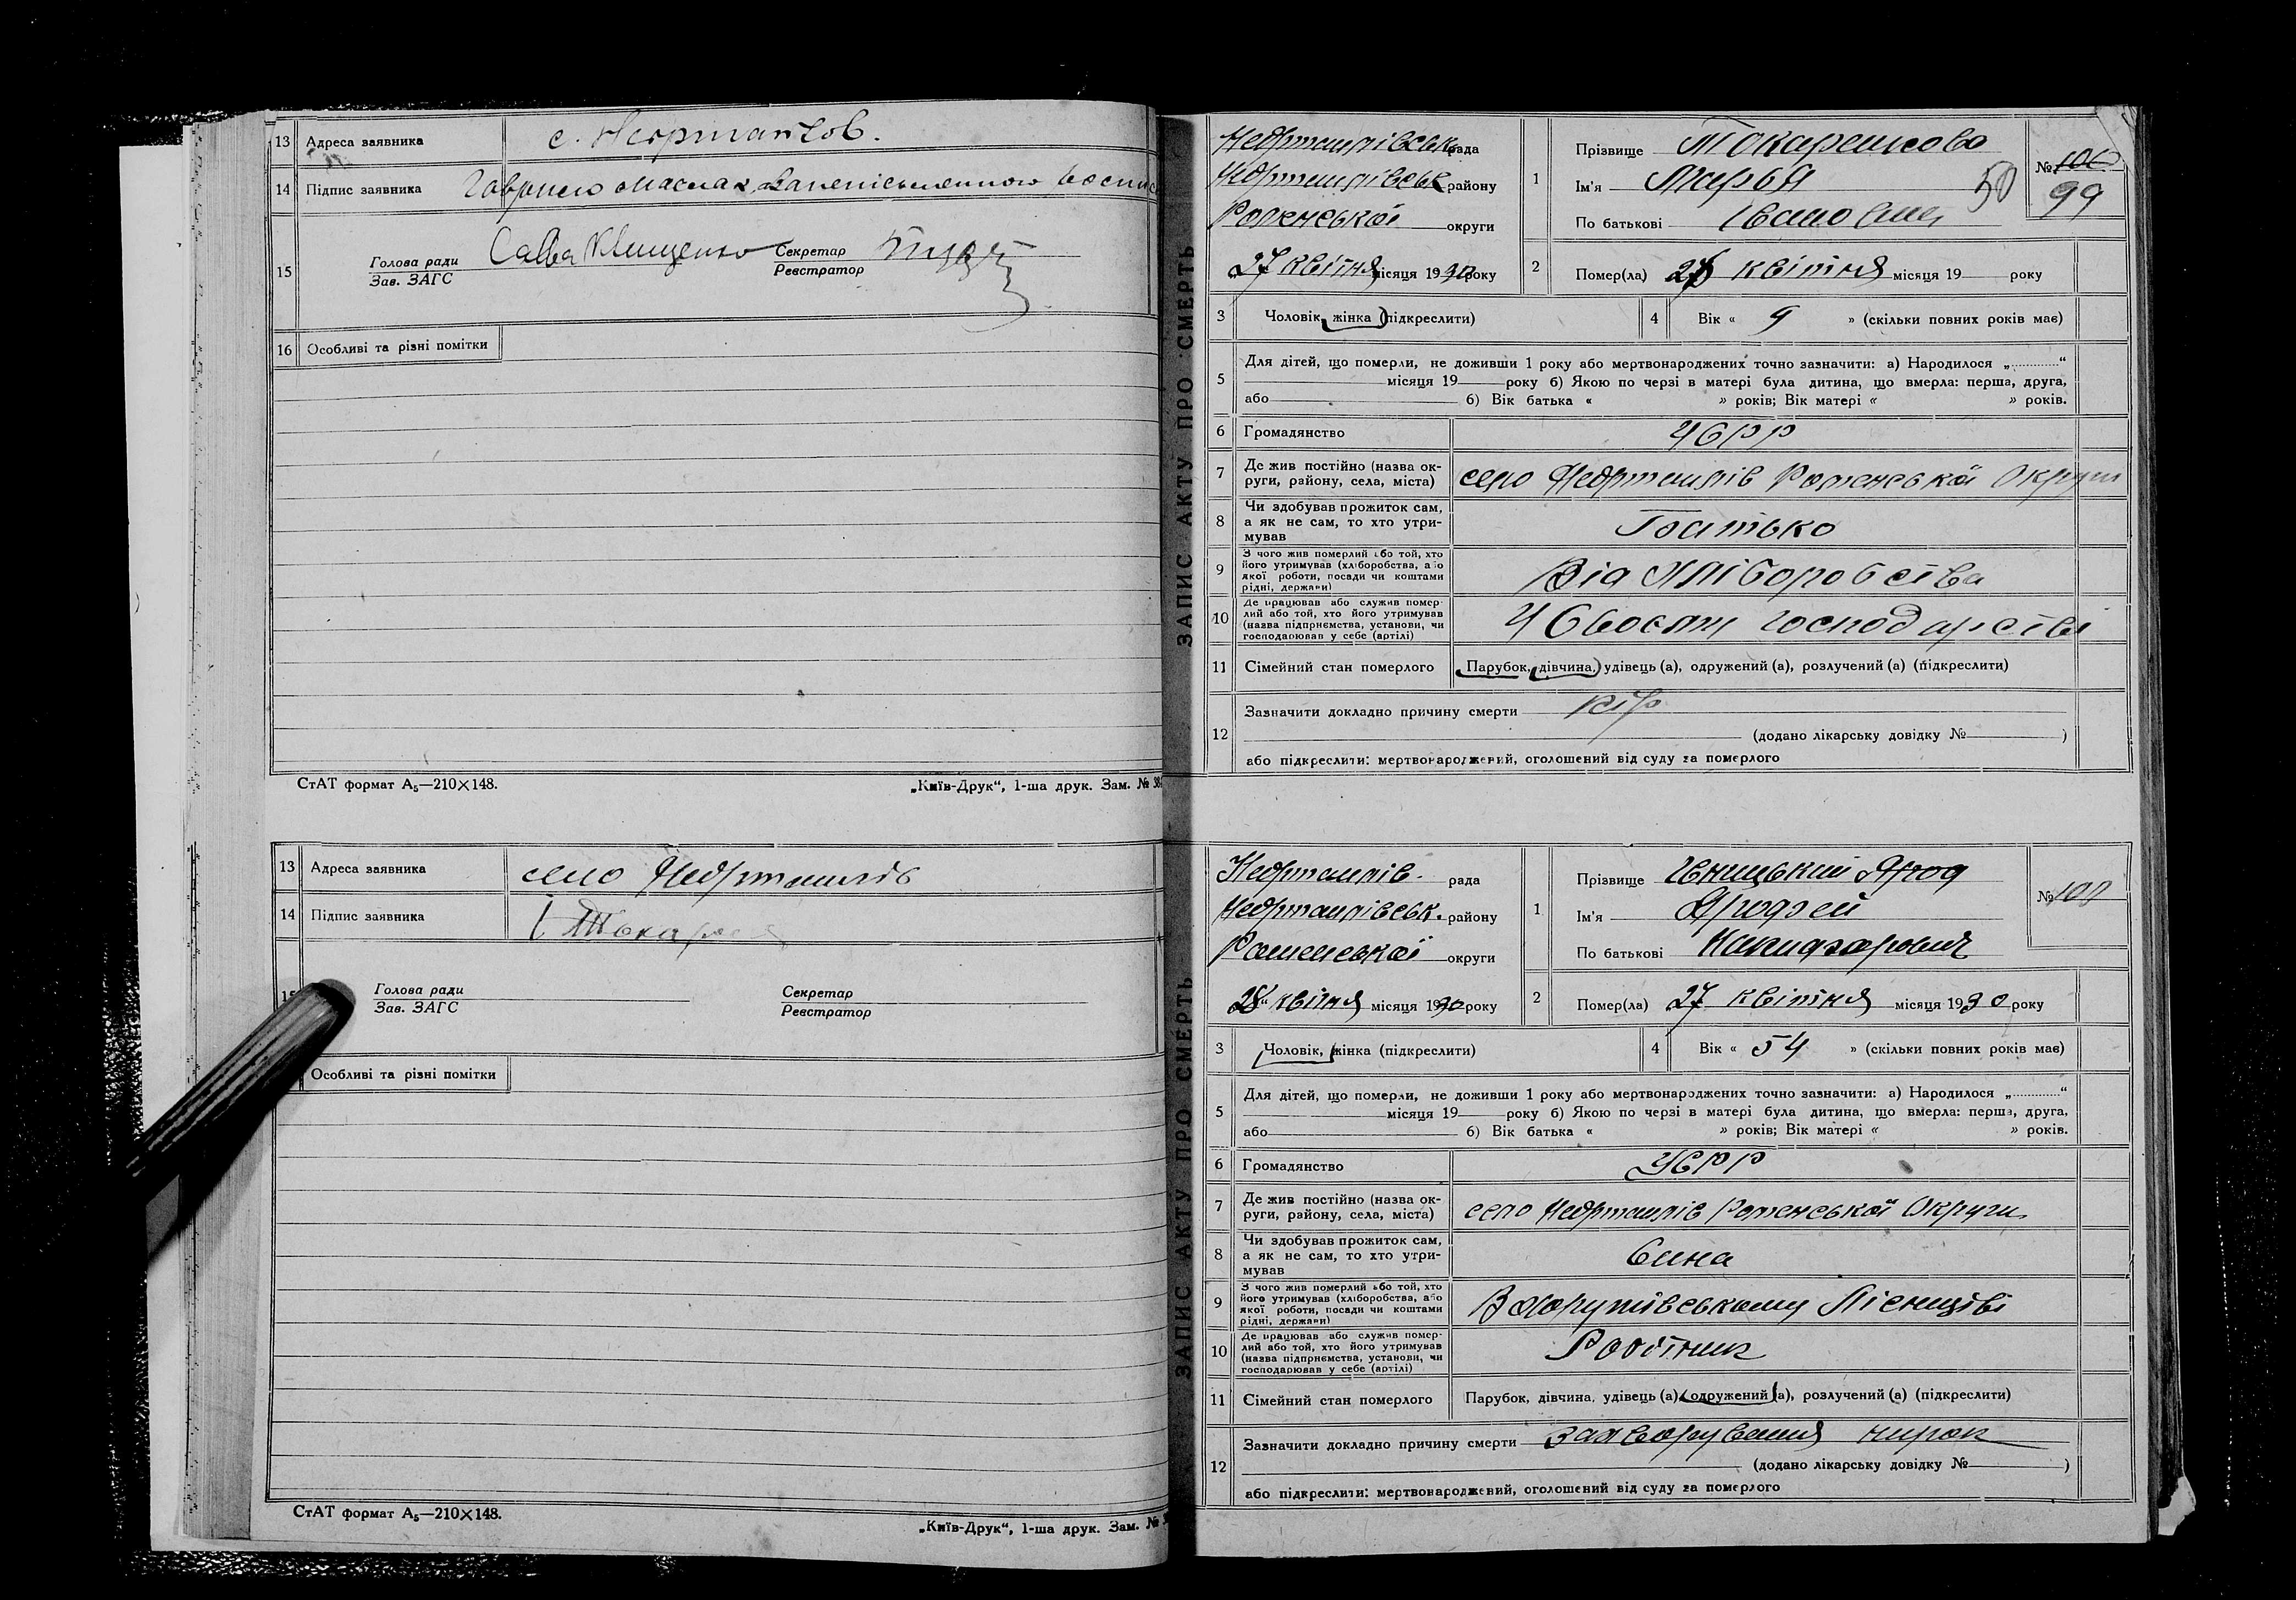 13 Адреса заявника
14 Підпис заявника
15 Голова ради Савва Клищенко Секретар
Зав. ЗАГС Реєстратор
16 Особливі та різні помітки
СтАТ формат А₅—210×148. „Київ-Друк“, 1-ша друк. Зам. №
13 Адреса заявника село
14 Підпис заявника
Голова ради Секретар
Зав. ЗАГС Реєстратор
Особливі та різні помітки
СтАТ формат А₅—210×148. „Київ-Друк“, 1-ша друк. Зам. №
ЗАПИС АКТУ ПРО СМЕРТЬ
рада
району
Роменської округи
27 квітня місяця 1930 року
1 Прізвище
Ім'я Марья
По батькові Івановна
50
№ 100
99
2 Помер(ла) квітня місяця 19 року
3 Чоловік, жінка (підкреслити)
4 Вік « 9 » (скільки повних років має)
5 Для дітей, що померли, не доживши 1 року або мертвонароджених точно зазначити: а) Народилося „ “
місяця 19 року б) Якою по черзі в матері була дитина, що вмерла: перша, друга,
або б) Вік батька « » років; Вік матері « » років.
6 Громадянство УСРР
7 Де жив постійно (назва ок-
руги, району, села, міста) село Роменської Округи
8 Чи здобував прожиток сам,
а як не сам, то хто утри-
мував Батько
9 З чого жив померлий або той, хто
його утримував (хліборобства, або
якої роботи, посади чи коштами
рідні, держави) Від Хліборобства
10 Де працював або служив помер-
лий або той, хто його утримував
(назва підприємства, установи, чи
господарював у себе (артілі) У Своєму господарстві
11 Сімейний стан померлого Парубок, дівчина, удівець (а), одружений (а), розлучений (а) (підкреслити)
12 Зазначити докладно причину смерти кір
(додано лікарську довідку № )
або підкреслити: мертвонароджений, оголошений від суду за померлого
ЗАПИС АКТУ ПРО СМЕРТЬ
рада
району
Роменської округи
28 квітня місяця 1930 року
1 Прізвище
Ім'я
По батькові
№ 100
2 Помер(ла) 27 квітня місяця 1930 року
3 Чоловік, жінка (підкреслити)
4 Вік « 54 » (скільки повних років має)
5 Для дітей, що померли, не доживши 1 року або мертвонароджених точно зазначити: а) Народилося „ “
місяця 19 року б) Якою по черзі в матері була дитина, що вмерла: перша, друга,
або б) Вік батька « » років; Вік матері « » років.
6 Громадянство УСРР
7 Де жив постійно (назва ок-
руги, району, села, міста) село Роменської Округи
8 Чи здобував прожиток сам,
а як не сам, то хто утри-
мував
9 З чого жив померлий або той, хто
його утримував (хліборобства, або
якої роботи, посади чи коштами
рідні, держави) Лісництві
10 Де працював або служив помер-
лий або той, хто його утримував
(назва підприємства, установи, чи
господарював у себе (артілі) Робітник
11 Сімейний стан померлого Парубок, дівчина, удівець (а), одружений (а), розлучений (а) (підкреслити)
12 Зазначити докладно причину смерти нирок
(додано лікарську довідку № )
або підкреслити: мертвонароджений, оголошений від суду за померлого